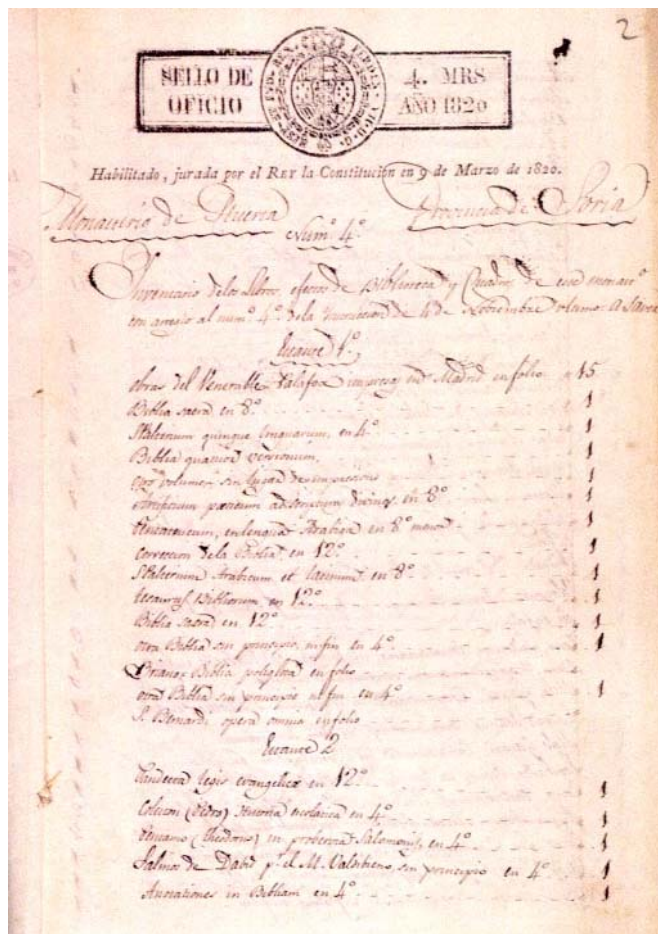 2
SELLO DE OFICIO
4. MRS AÑO 1820
HISP. ET IND. REX. FERDIN. VII. D. G.
Habilitado, jurada por el REY la Constitución en 9 de Marzo de 1820.
Monasterio de Huerta Provincia de Soria
Num.º 4.º
Inventario delos Libros, efectos de Biblioteca y Quadros de este monast.º
con arreglo al num.º 4.º dela Instruccion de 4 de Noviembre
Estante 1.º
obras del Venerable Palafox impresas en Madrid en folio 15
Biblia sacra en 8.º 1
Psalterium quinque linguarum, en 4.º 1
Biblia quatuor versionum, 1
otro volumen sin lugar de impresion 1
en 8.º 1
en lengua Arabiga en 8.º mayor 1
Correccion dela Biblia en 12.º 1
Psalterium Arabicum et latinum en 8.º 1
tesaurus Bibliorum en 12.º 1
Biblia sacra en 12.º 1
otra Biblia sin principio, ni fin en 4.º 1
Biblia poliglota en folio
otra Biblia sin principio ni fin en 4.º 1
S. Bernardi opera omnia en folio
Estante 2
legis evangelice en 12.º 1
(Pedro) Historia escolastica en 4.º 1
(theodoro) en proberbia Salomonis, en 4.º 1
Salmos de David p.r el M. sin principio en 4.º 1
Anotationes in Bibliam en 4.º 1